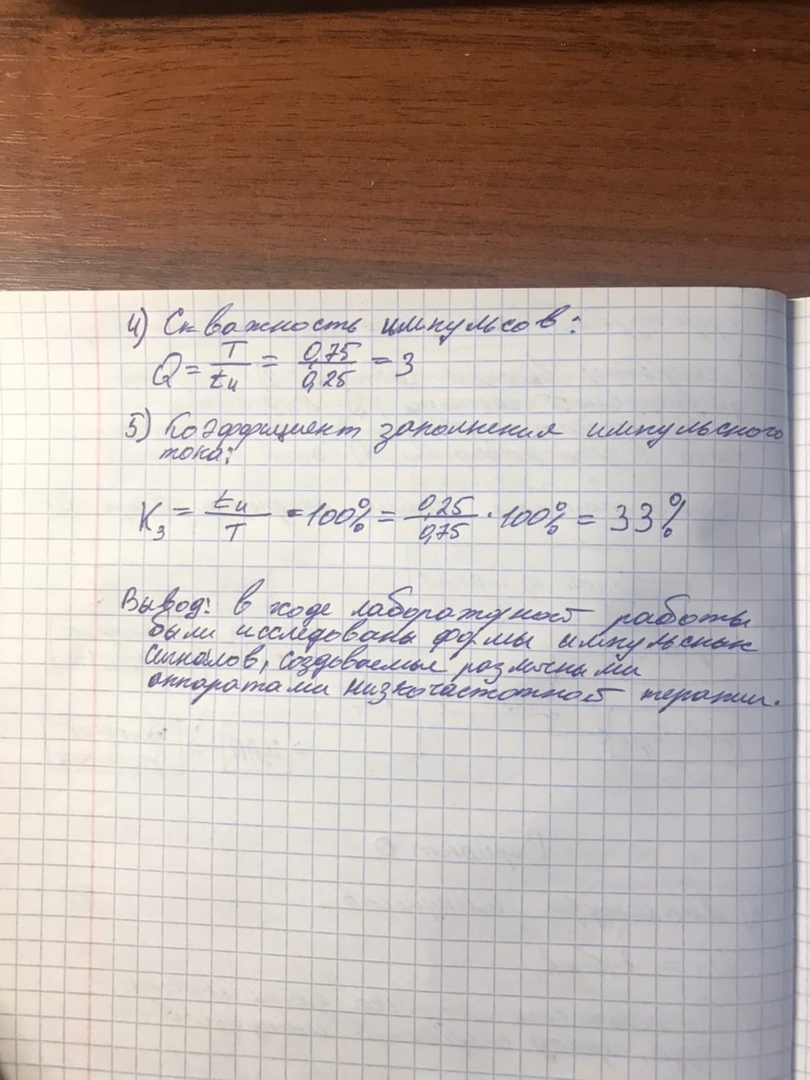 4) Скважность импульсов:
Q = T/tи = 0,75/0,25 = 3
5) Коэффициент заполнения импульсного
тока:
Kз = tи/T · 100% = 0,25/0,75 · 100% = 33%
Вывод: в ходе лабораторной работы
были исследованы формы импульсных
сигналов, создаваемые различными
аппаратами низкочастотной терапии.